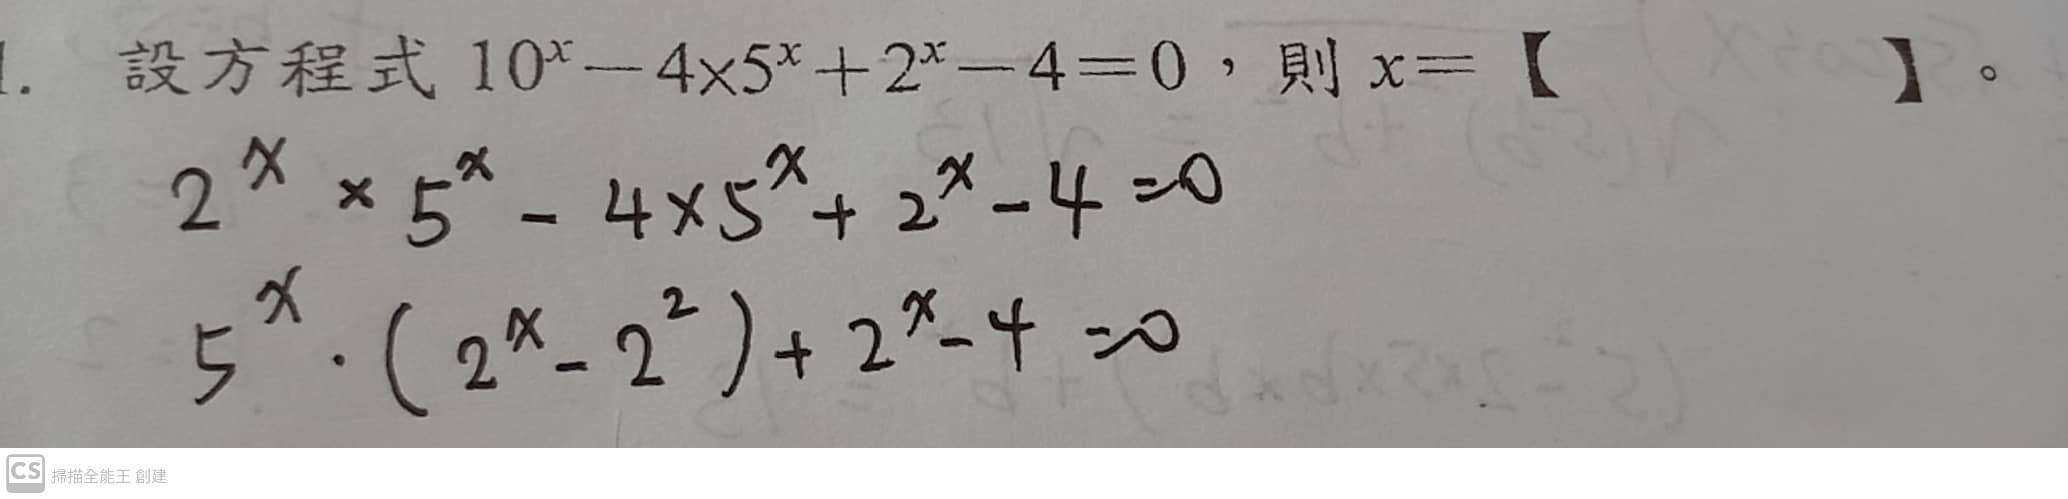 1. 設方程式 10ˣ－4×5ˣ＋2ˣ－4＝0，則 x＝【 】。
2ˣ × 5ˣ - 4×5ˣ + 2ˣ - 4 = 0
5ˣ · (2ˣ - 2²) + 2ˣ - 4 = 0
CS 掃描全能王 創建